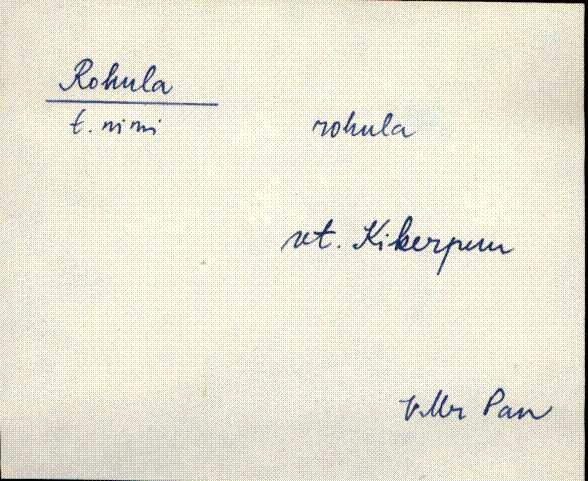 Rohula
t. nimi
rohula
vt. Kikerpuu
V.Mr Pan